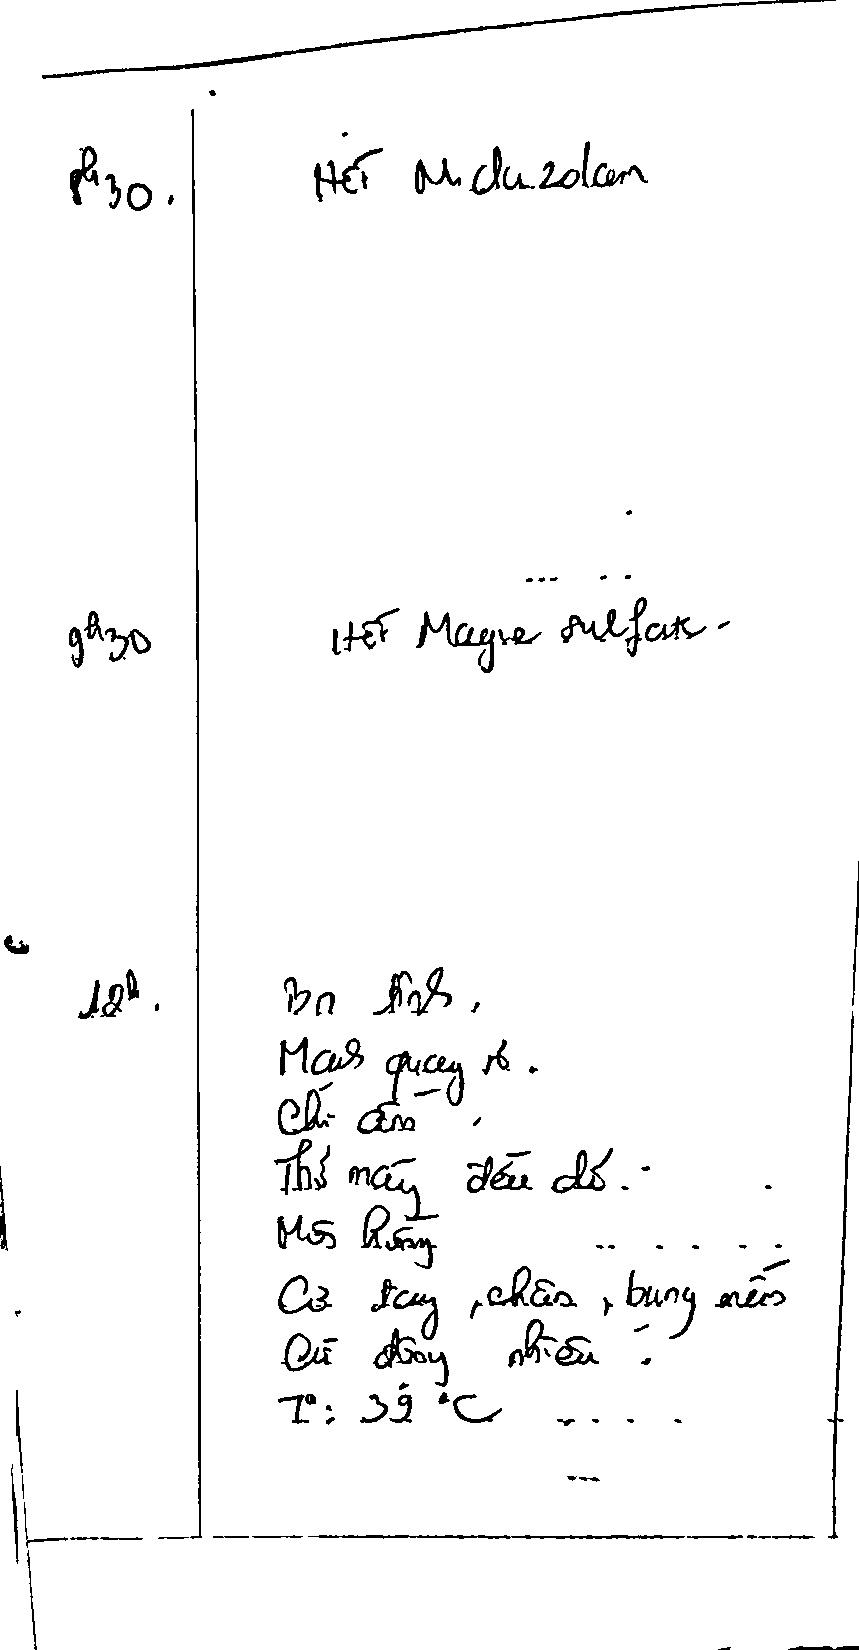 8h30. HẾT Midazolam
9h30 HẾT Magie sulfate.
12h. Bn tỉnh.
Mạch quay rõ.
Chi ấm.
Thở máy đều
Môi hồng
Cơ tay, chân, bụng mềm
Cử động nhiều.
T°: 39 °C